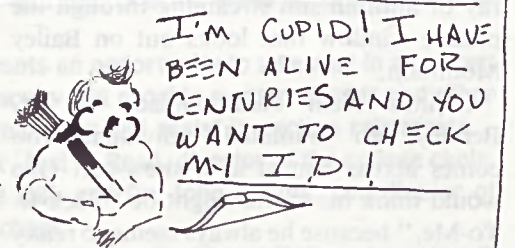 I'M CUPID! I HAVE
BEEN ALIVE FOR
CENTURIES AND YOU
WANT TO CHECK
MY I.D.!